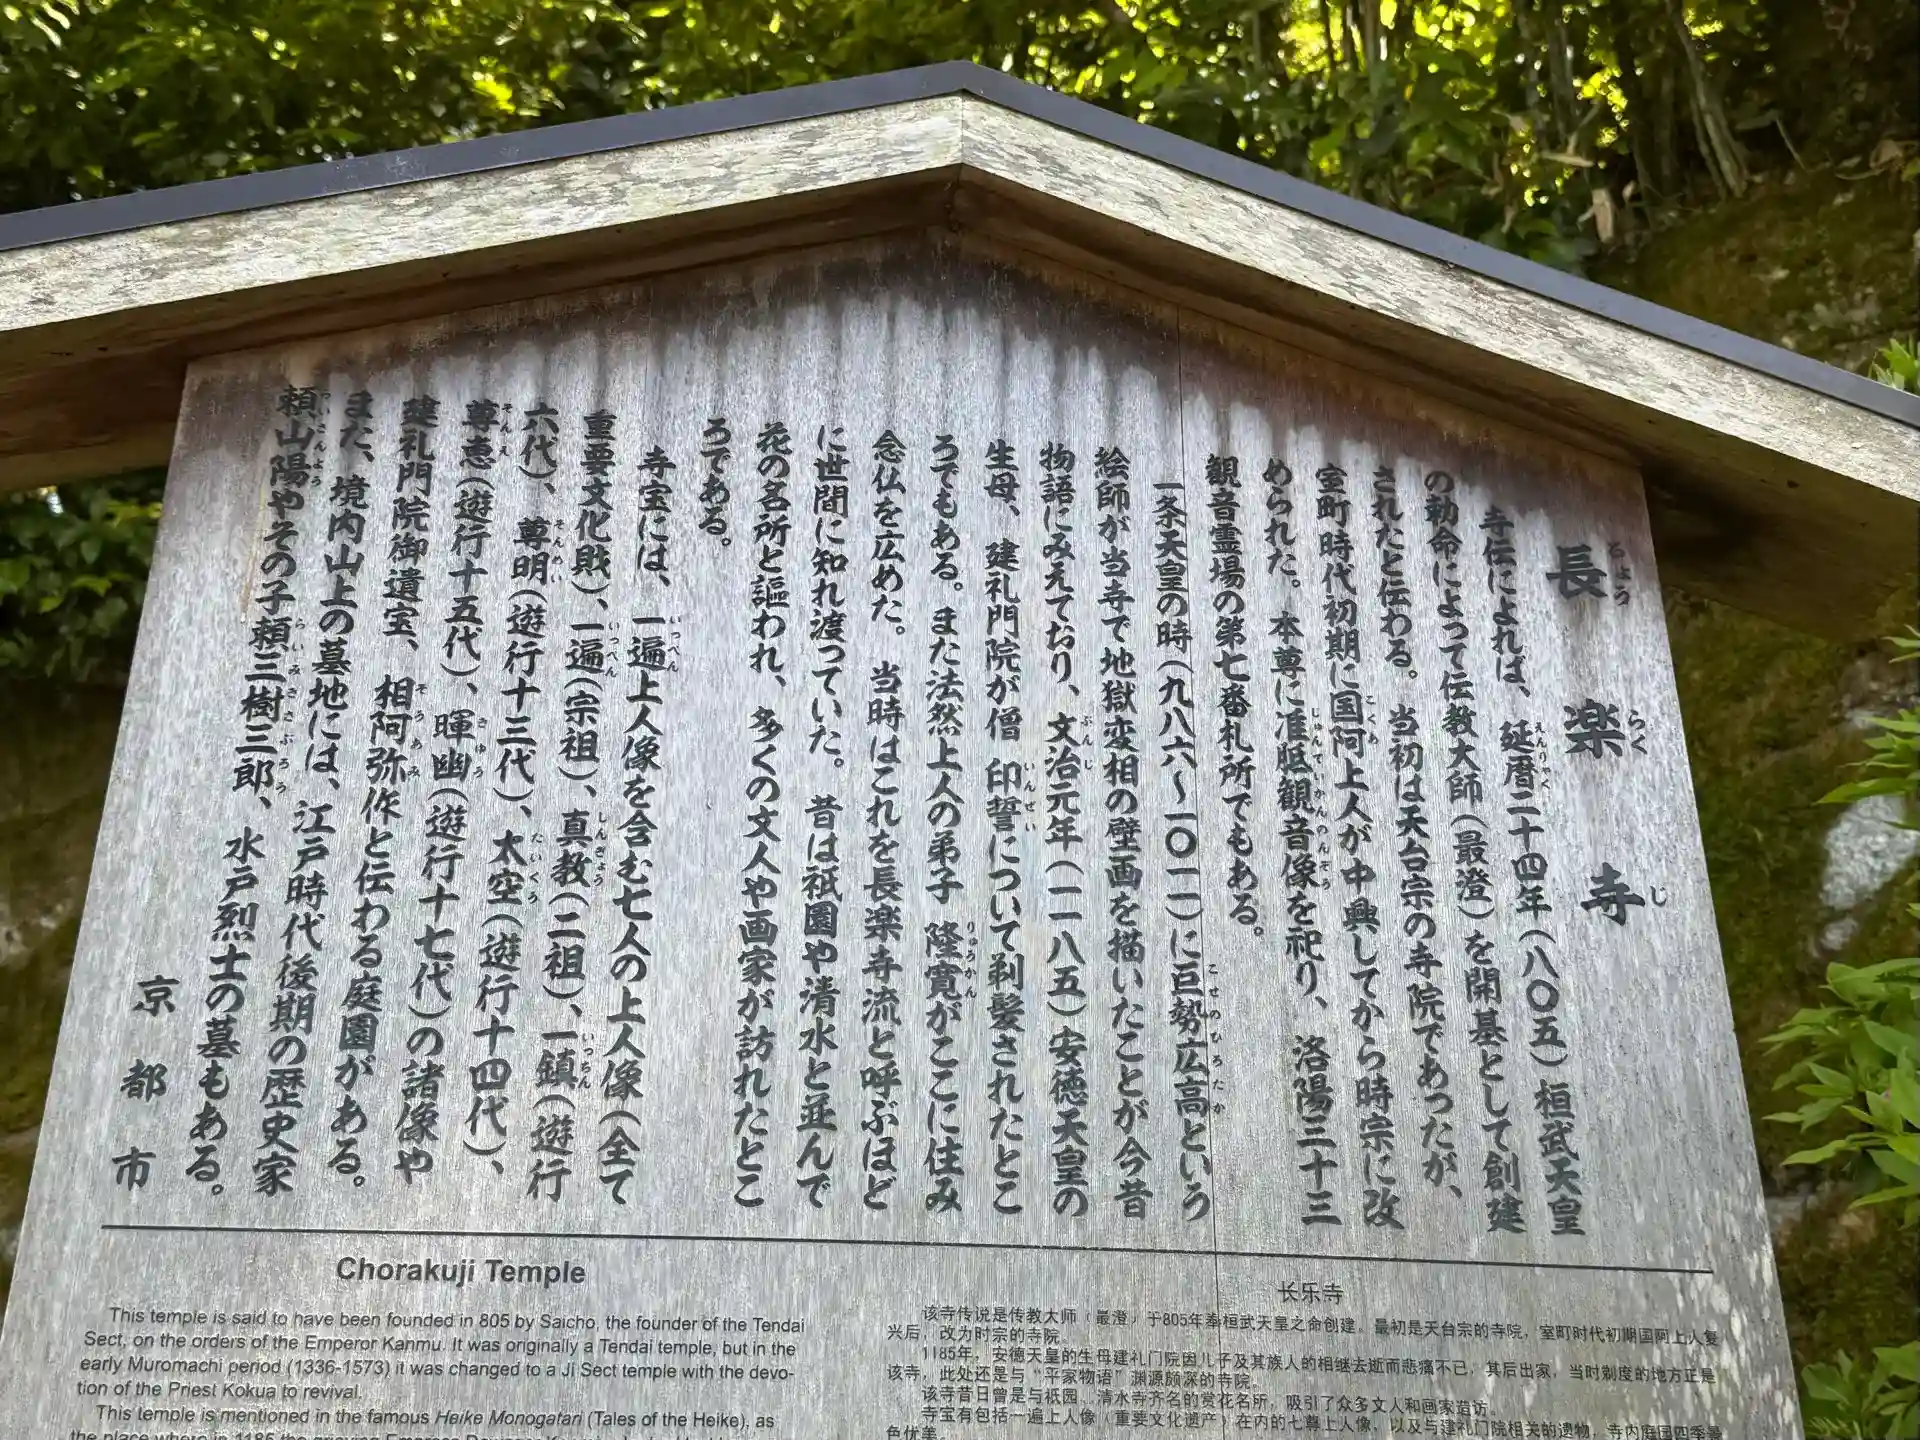 長楽寺
寺伝によれば、延暦二十四年(八〇五)桓武天皇
の勅命によって伝教大師(最澄)を開基として創建
されたと伝わる。当初は天台宗の寺院であったが、
室町時代初期に国阿上人が中興してから時宗に改
められた。本尊に准胝観音像を祀り、洛陽三十三
観音霊場の第七番札所でもある。
一条天皇の時(九八六〜一〇一一)に巨勢広高という
絵師が当寺で地獄変相の壁画を描いたことが今昔
物語にみえており、文治元年(一一八五)安徳天皇の
生母、建礼門院が僧 印誓について剃髪されたとこ
ろでもある。また法然上人の弟子 隆寛がここに住み
念仏を広めた。当時はこれを長楽寺流と呼ぶほど
に世間に知れ渡っていた。昔は祇園や清水と並んで
花の名所と謳われ、多くの文人や画家が訪れたとこ
ろである。
寺宝には、一遍上人像を含む七人の上人像(全て
重要文化財)、一遍(宗祖)、真教(二祖)、一鎮(遊行
六代)、尊明(遊行十三代)、太空(遊行十四代)、
尊恵(遊行十五代)、暉幽(遊行十七代)の諸像や
建礼門院御遺宝、相阿弥作と伝わる庭園がある。
また、境内山上の墓地には、江戸時代後期の歴史家
頼山陽やその子頼三樹三郎、水戸烈士の墓もある。
京都市
Chorakuji Temple
This temple is said to have been founded in 805 by Saicho, the founder of the Tendai
Sect, on the orders of the Emperor Kanmu. It was originally a Tendai temple, but in the
early Muromachi period (1336-1573) it was changed to a Ji Sect temple with the devo-
tion of the Priest Kokua to revival.
This temple is mentioned in the famous Heike Monogatari (Tales of the Heike), as
the place where in 1185 the grieving Empress
长乐寺
该寺传说是传教大师(最澄)于805年奉桓武天皇之命创建。最初是天台宗的寺院,室町时代初期国阿上人复
兴后,改为时宗的寺院。
1185年,安德天皇的生母建礼门院因儿子及其族人的相继去逝而悲痛不已,其后出家,当时剃度的地方正是
该寺,此处还是与“平家物语”渊源颇深的寺院。
该寺昔日曾是与祇园、清水寺齐名的赏花名所,吸引了众多文人和画家造访。
寺宝有包括一遍上人像(重要文化遗产)在内的七尊上人像,以及与建礼门院相关的遗物,寺内庭园四季景
色优美。